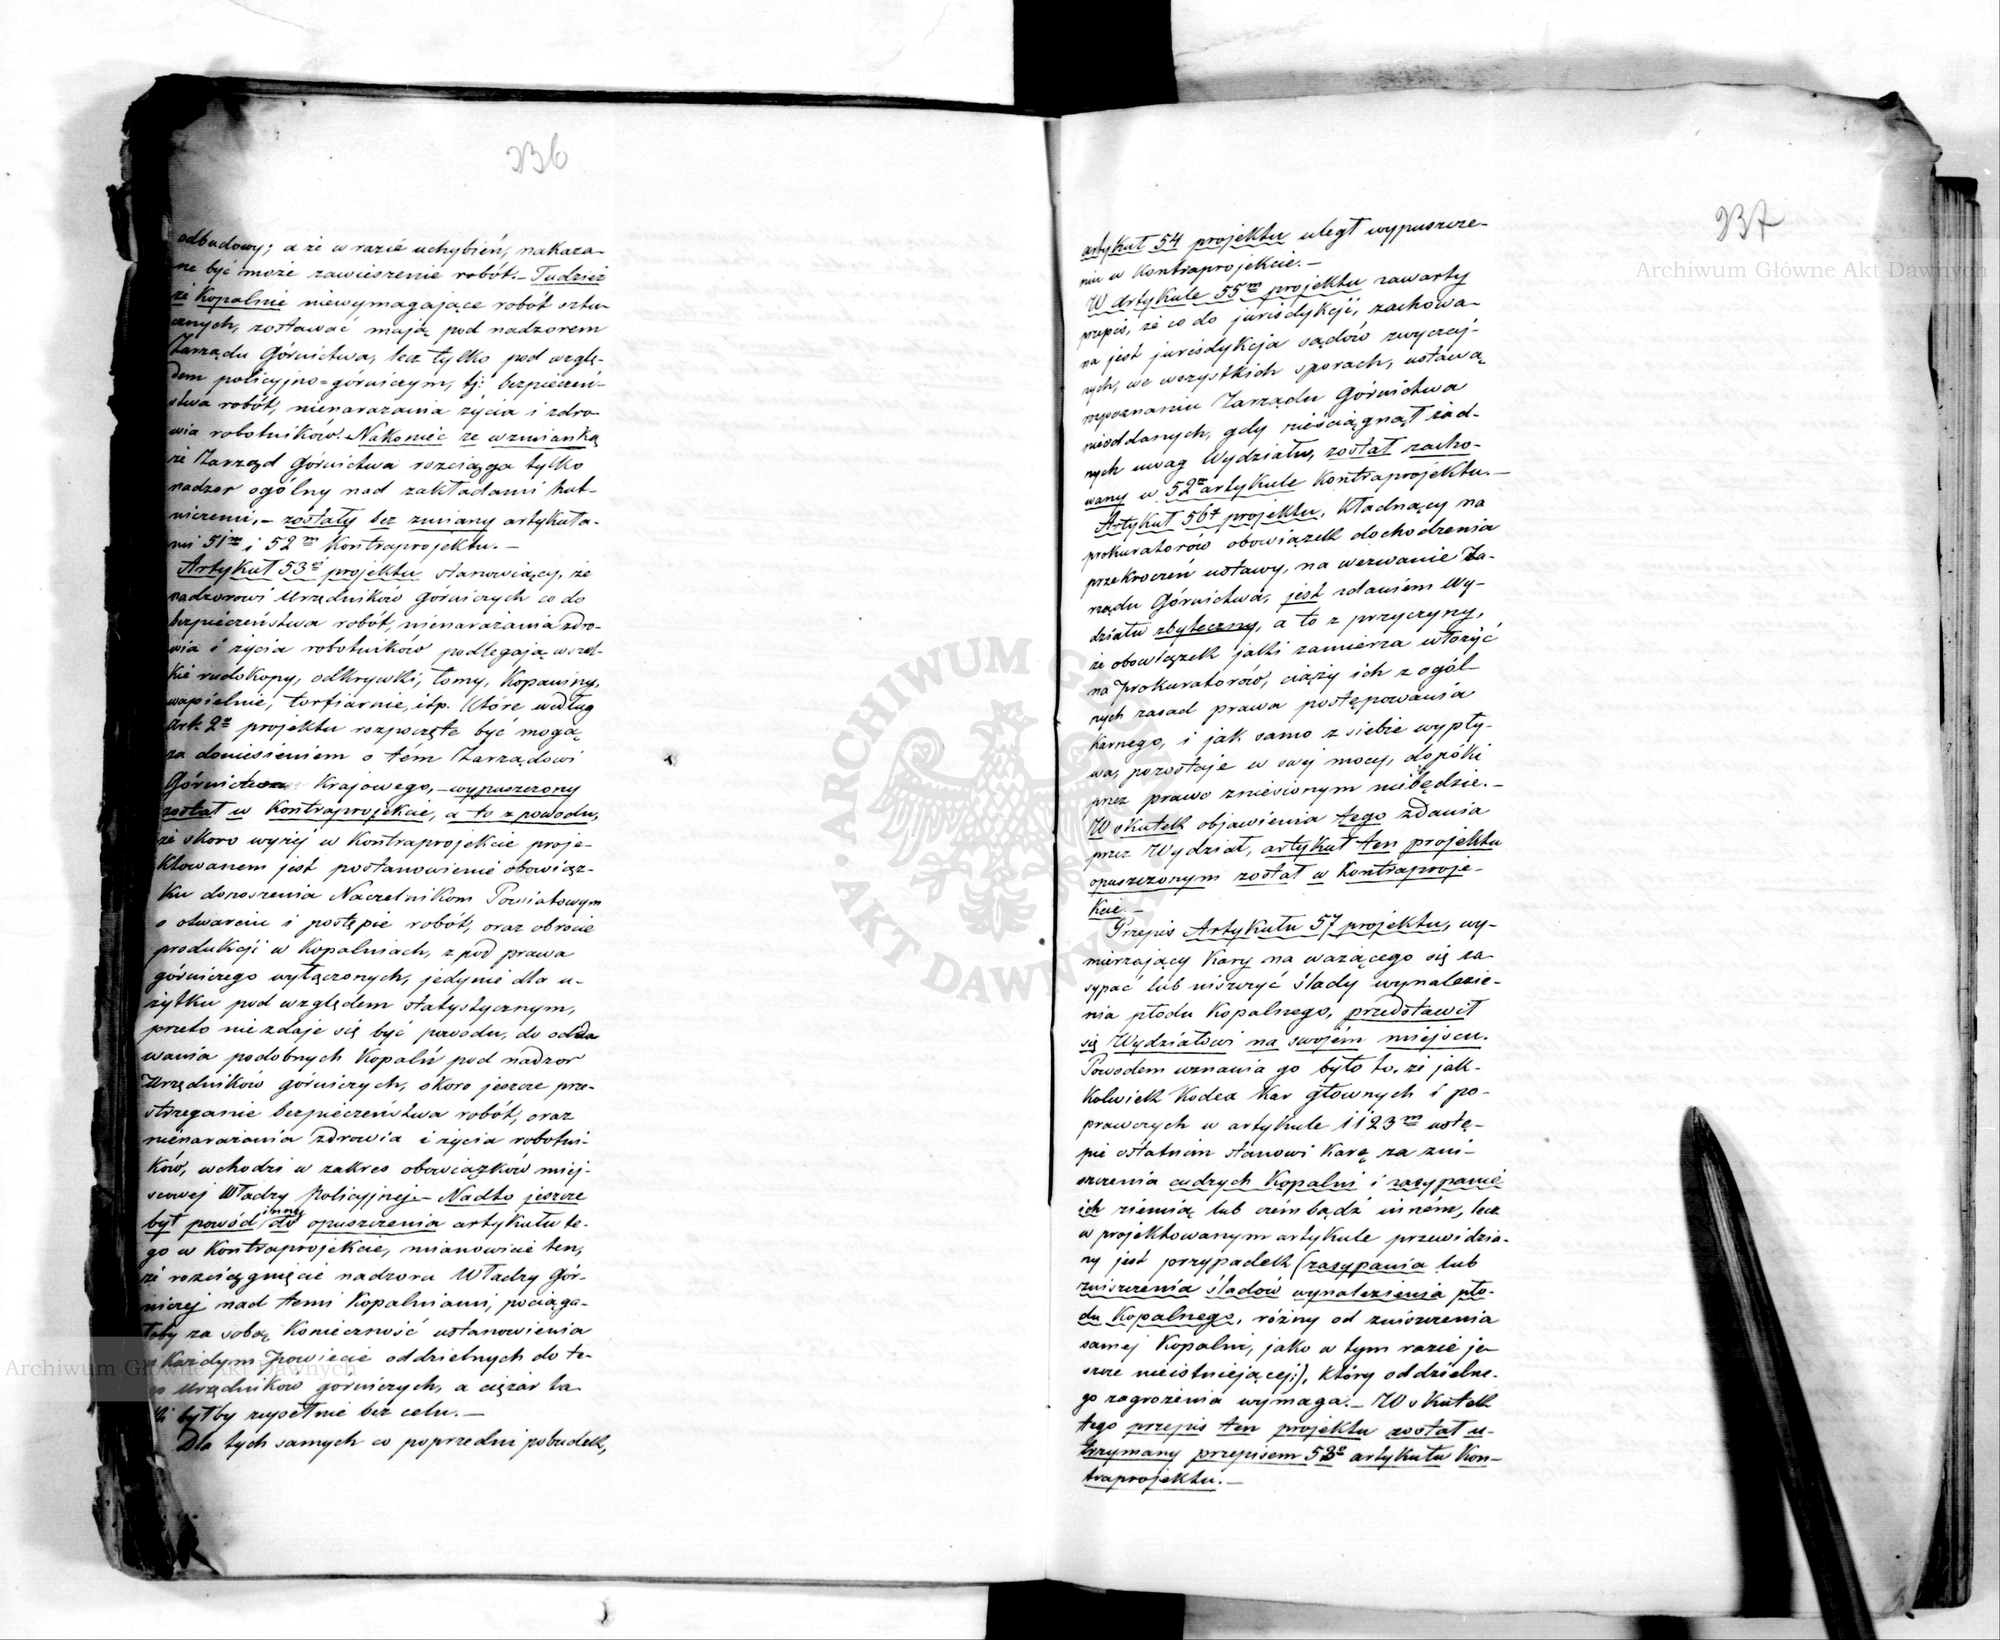 236
odbudowy; a że w razie uchybień, nakaza-
ne być może zawieszenie robót.— Tudzież
że Kopalnie niewymagające robót sztu-
cznych, zostawać mają pod nadzorem
Zarządu Górnictwa, lecz tylko pod wzglę-
dem policyjno=górniczym, tj: bezpieczeń-
stwa robót, nienarażania życia i zdro-
wia robotników. Nakoniec ze wzmianką
że Zarząd Górnictwa rozciąga tylko
nadzor ogólny nad zakładami hut-
niczemi,— zostały bez zmiany artykuła-
mi 51m i 52m Kontraprojektu.—
Artykuł 53ci projektu stanowiący, że
nadzorowi Urzędników górniczych co do
bezpieczeństwa robót, nienarażania zdro-
wia i życia robotników podlegają wszel-
kie rudokopy, odkrywki, łomy, Kopaniny,
wapielnie, torfiarnie, itp. Które według
Art. 2o projektu rozpoczęte być mogą
za doniesieniem o tém Zarządowi
Górnictwa Krajowego,— wypuszczony
został w Kontraprojekcie, a to z powodu,
że skoro wyżéj w Kontraprojekcie proje-
ktowanem jest postanowienie obowiąz-
ku donoszenia Naczelnikom Powiatowym
o otwarciu i postępie robót, oraz obrocie
produkcji w Kopalniach, z pod prawa
górniczego wyłączonych, jedynie dla u-
żytku pod względem statystycznym,
przeto nie zdaje się być powodu, do odda
wania podobnych Kopalń pod nadzor
Urzędników górniczych, skoro jeszcze prze-
strzeganie bezpieczeństwa robót, oraz
nienarażania zdrowia i życia robotni-
ków, wchodzi w zakres obowiązków miej-
scowej Władzy Policyjnej.— Nadto jeszcze
był powód inny do opuszczenia artykułu te-
go w Kontraprojekcie, mianowicie ten,
że rozciągnięcie nadzoru Władzy Gór-
niczej nad temi Kopalniami, pociąga-
łoby za sobą Konieczność ustanowienia
w Każdym Powiecie oddzielnych do te-
go Urzędników gorniczych, a ciężar ta
ki byłby zupełnie bez celu.—
Dla tych samych co poprzedni pobudek,
237
artykuł 54 projektu uległ wypuszcze-
niu w Kontraprojekcie.—
W Artykule 55m projektu zawarty
przepis, że co do jurisdykcji, zachowa-
na jest jurisdykcja sądów zwyczaj-
nych, we wszystkich sporach, ustawą
rozpoznaniu Zarządu Górnictwa
nieoddanych, gdy nieściągnął żad-
nych uwag Wydziału, został zacho-
wany w 52m artykule Kontraprojektu.—
Artykuł 56ty projektu, Kładnący na
prokuratorów obowiązek dochodzenia
przekroczeń ustawy, na wezwanie Za-
rządu Górnictwa, jest zdaniem Wy-
działu zbyteczny, a to z przyczyny,
że obowiązek jaki zamierza włożyć
na Prokuratorów, ciąży ich z ogól-
nych zasad prawa postępowania
Karnego, i jak samo z siebie wypły-
wa, pozostaje w swej mocy, dopóki
przez prawo zniesionym niebędzie.—
W skutek objawienia tego zdania
przez Wydział, artykuł ten projektu
opuszczonym został w Kontraproje-
kcie.—
Przepis Artykułu 57 projektu, wy-
mierzający Kary na ważącego się za
sypać lub niszczyć ślady wynalezie-
nia płodu Kopalnego, przedstawił
się Wydziałowi na swojém miejscu.
Powodem uznania go było to, że jak-
kolwiek Kodex Kar głównych i po-
prawczych w artykule 1123m ustę-
pie ostatnim stanowi Karę za zni-
szczenia cudzych Kopalni i zasypanie
ich ziemią lub czémbądź inném, lecz
w projektowanym artykule przewidzia-
ny jest przypadek (zasypania lub
zniszczenia śladów wynalezienia pło-
du Kopalnego, różny od zniszczenia
samej Kopalni, jako w tym razie je-
szcze nieistniejącej), który oddzielne-
go zagrożenia wymaga.— W skutek
tego przepis ten projektu został u-
trzymany przepisem 53o artykułu Kon-
traprojektu.—
Archiwum Główne Akt Dawnych
Archiwum Główne Akt Dawnych